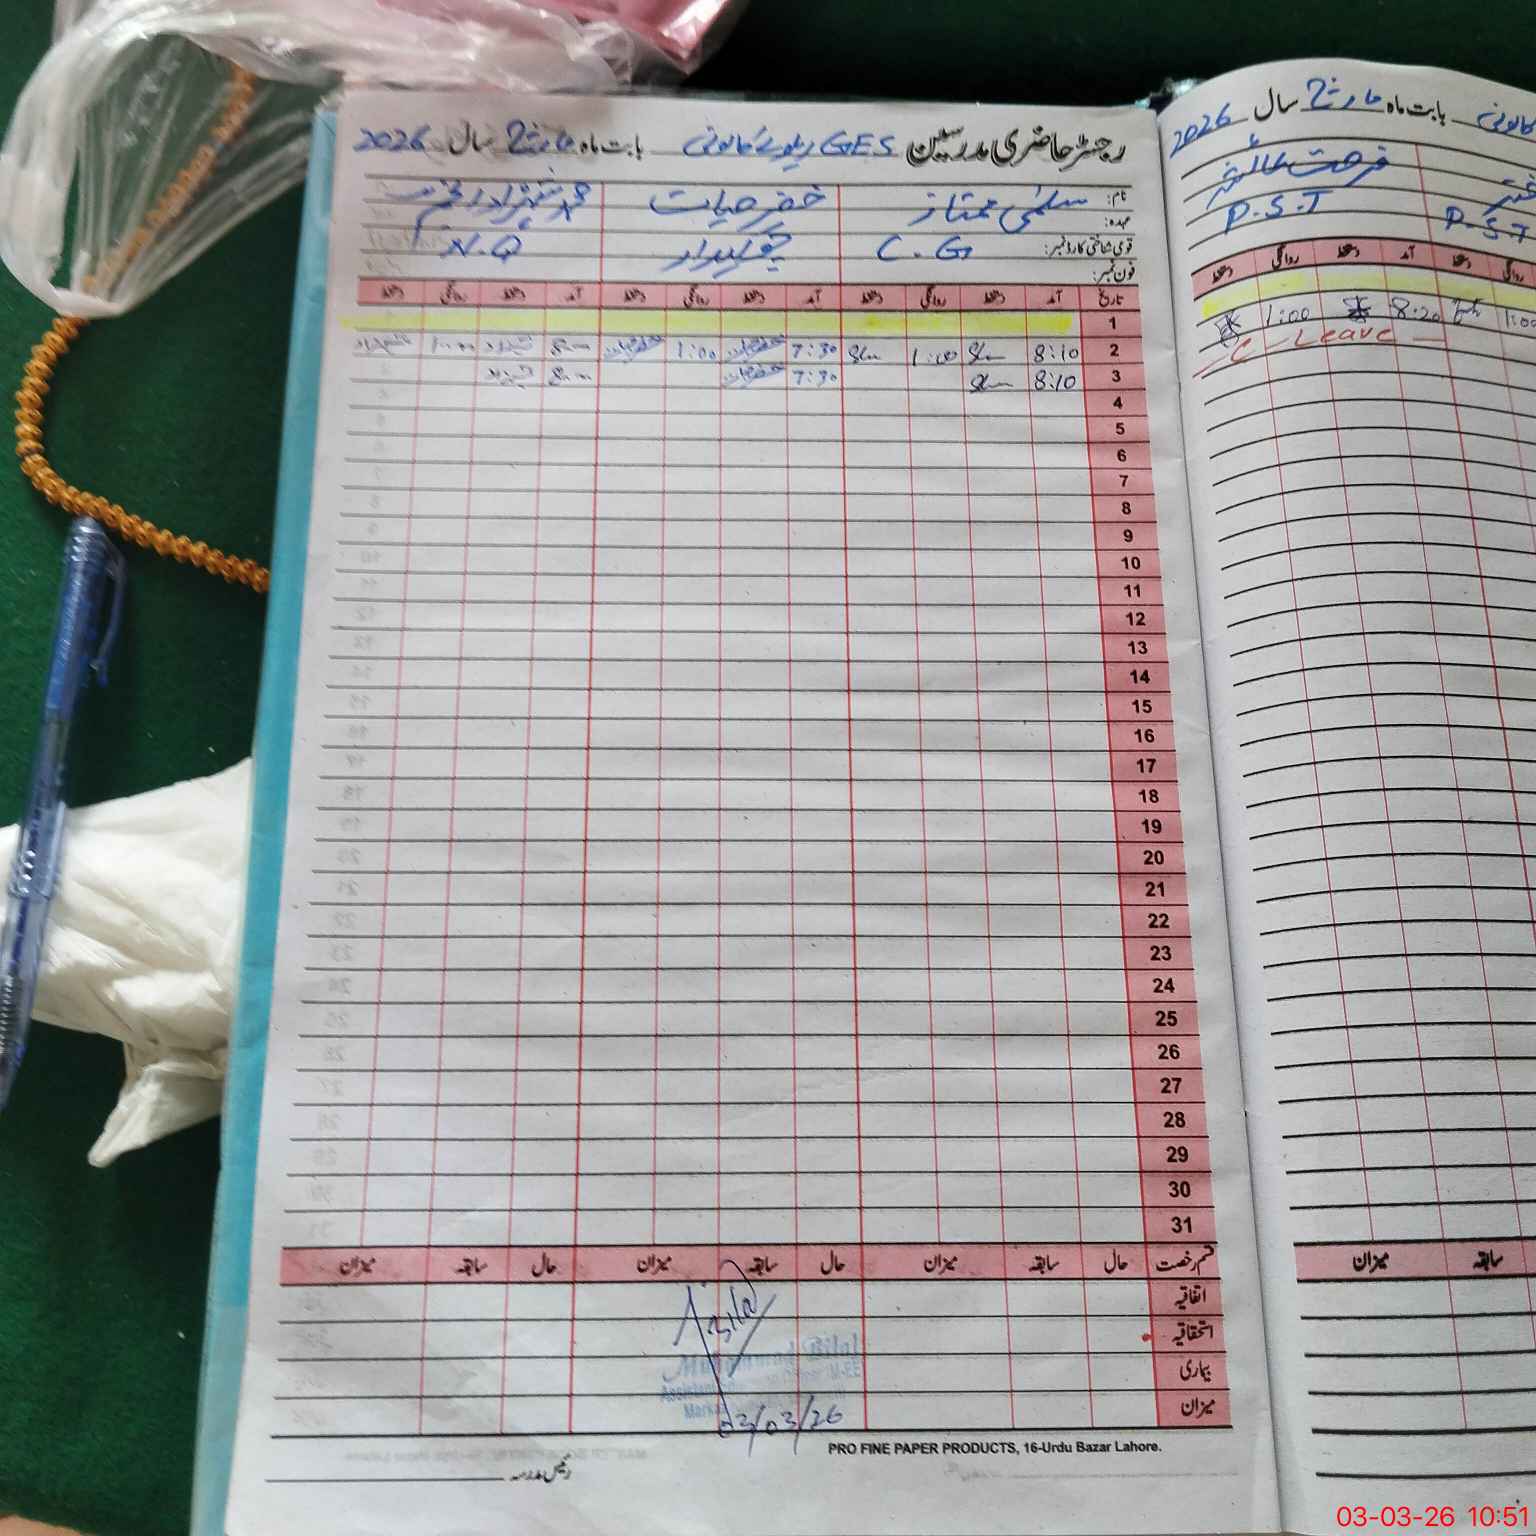 رجسٹر حاضری مدرسین GES ریلوے کالونی بابت ماہ مارچ سال 2026
نام: سلمیٰ ممتاز خضر حیات محمد شہزاد
عہدہ:
قومی شناختی کارڈ نمبر: C.G چوکیدار N.Q
فون نمبر:
تاریخ آمد دستخط روانگی دستخط آمد دستخط روانگی دستخط آمد دستخط روانگی دستخط
1
2 8:10 1:00 7:30 خضر حیات 1:00 خضر حیات 8:00 شہزاد 1:00 شہزاد
3 8:10 7:30 خضر حیات 8:00 شہزاد
4
5
6
7
8
9
10
11
12
13
14
15
16
17
18
19
20
21
22
23
24
25
26
27
28
29
30
31
قسم رخصت حال سابقہ میزان حال سابقہ میزان حال سابقہ میزان
اتفاقیہ
استحقاقیہ
بیماری
میزان
Muhammad Bilal
03/03/26
PRO FINE PAPER PRODUCTS, 16-Urdu Bazar Lahore.
رئیس مدرسہ
کالونی بابت ماہ مارچ سال 2026
فرحت
P.S.T P.S.T
روانگی دستخط آمد دستخط روانگی دستخط
1:00 8:20 1:00
C - Leave -
سابقہ میزان
03-03-26 10:51